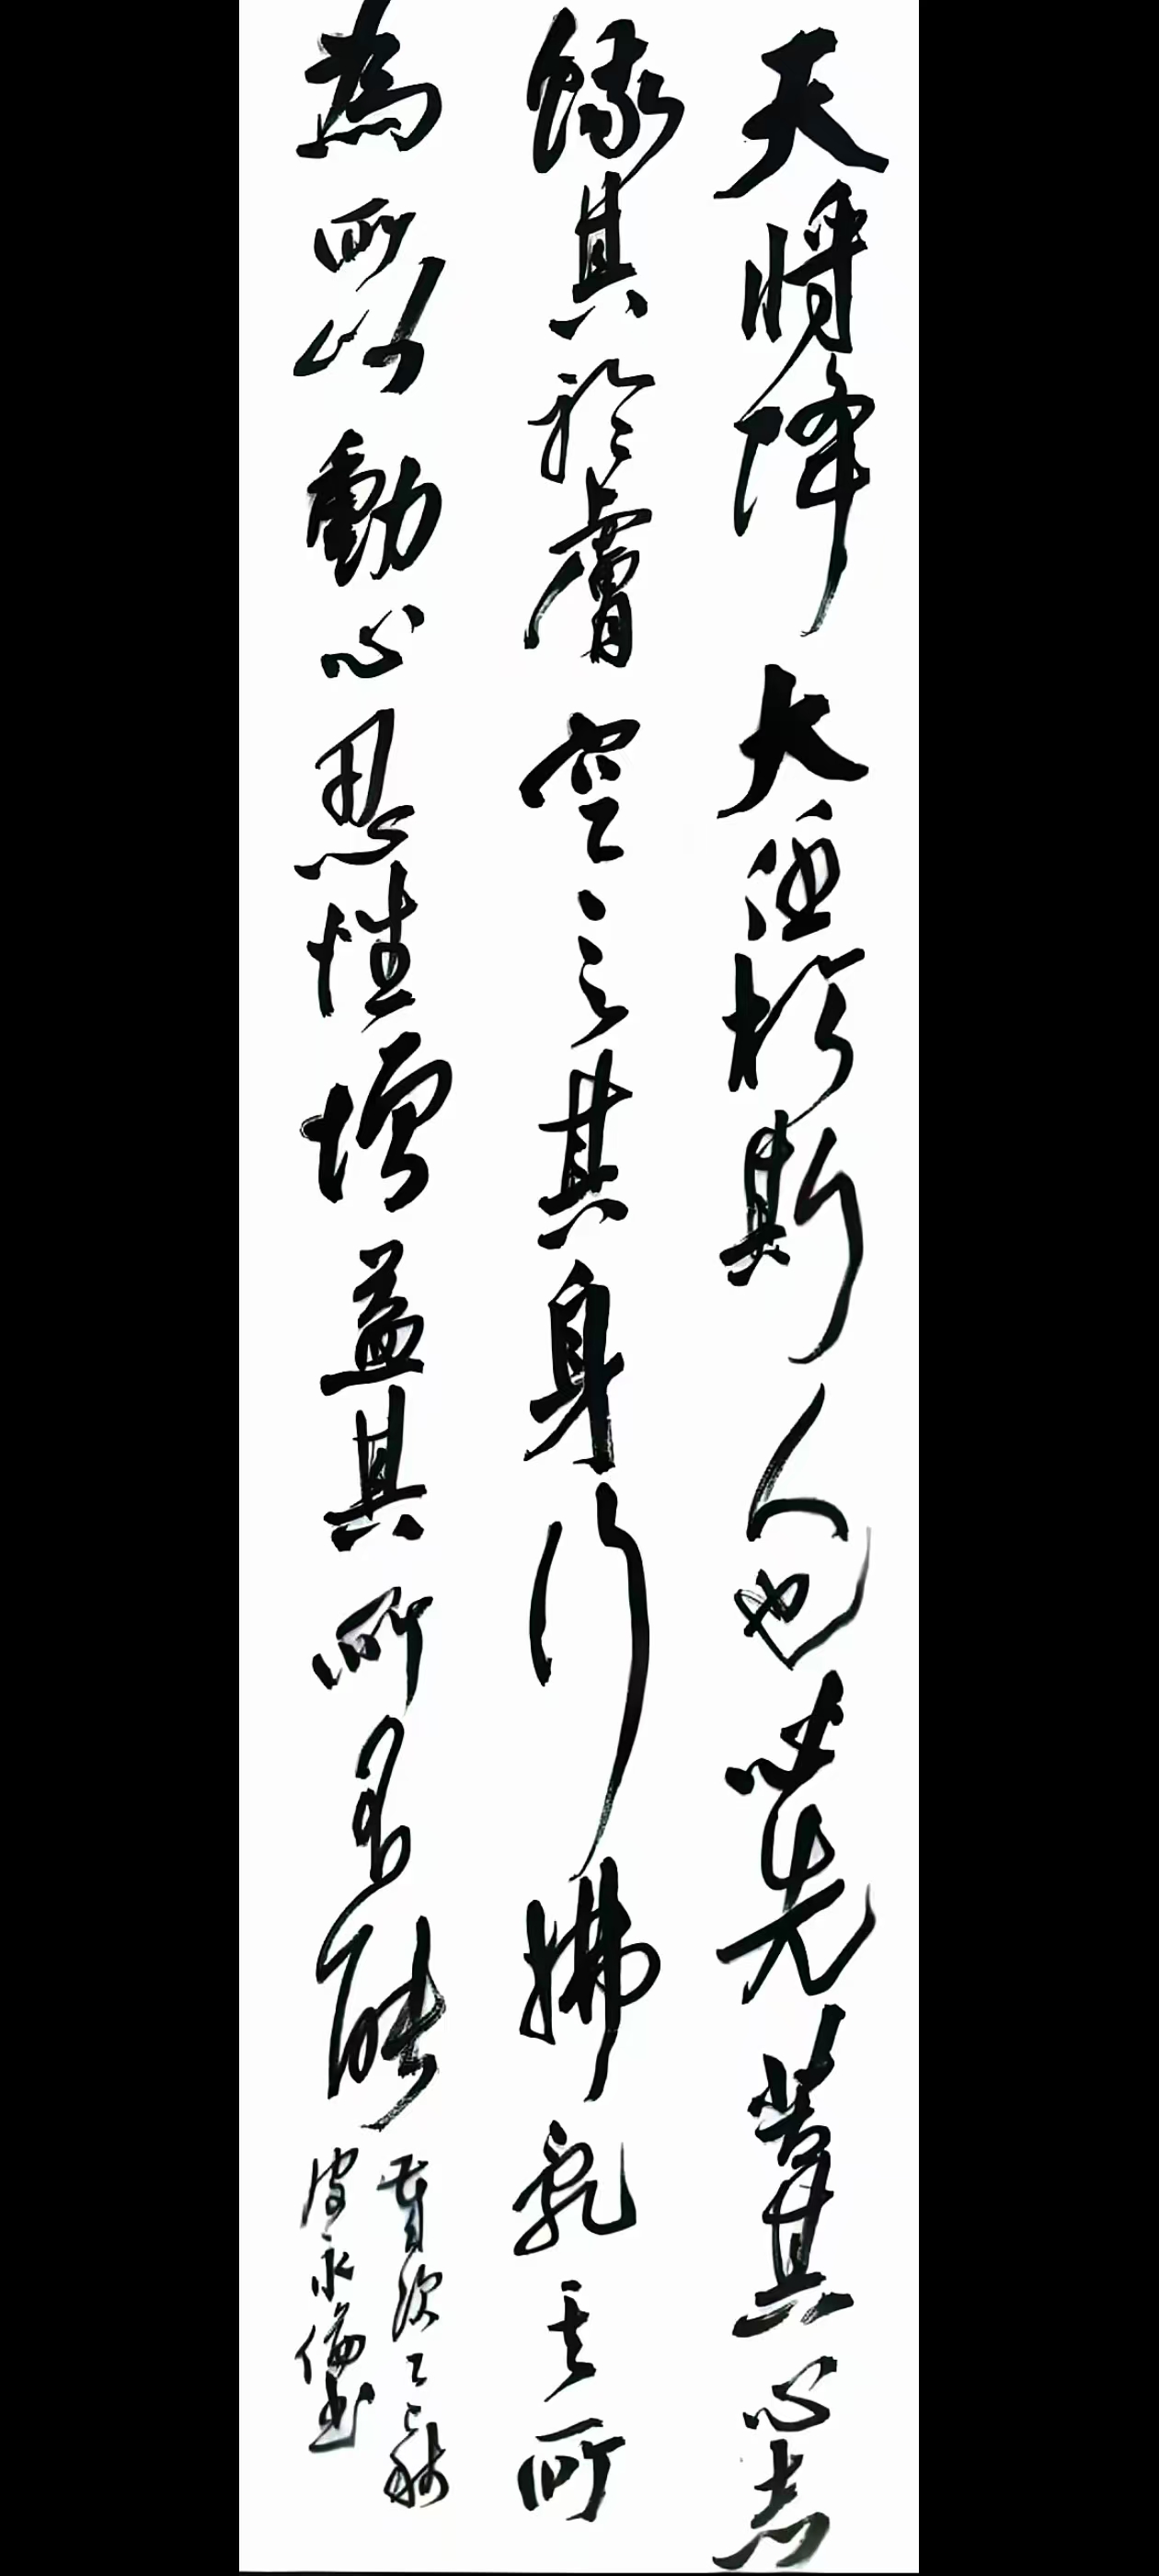 天將降大任於斯人也必先苦其心志
餓其於膚空之其身行拂亂其所
為所以動心忍性增益其所不能
歲次乙巳秋
皮永倫書